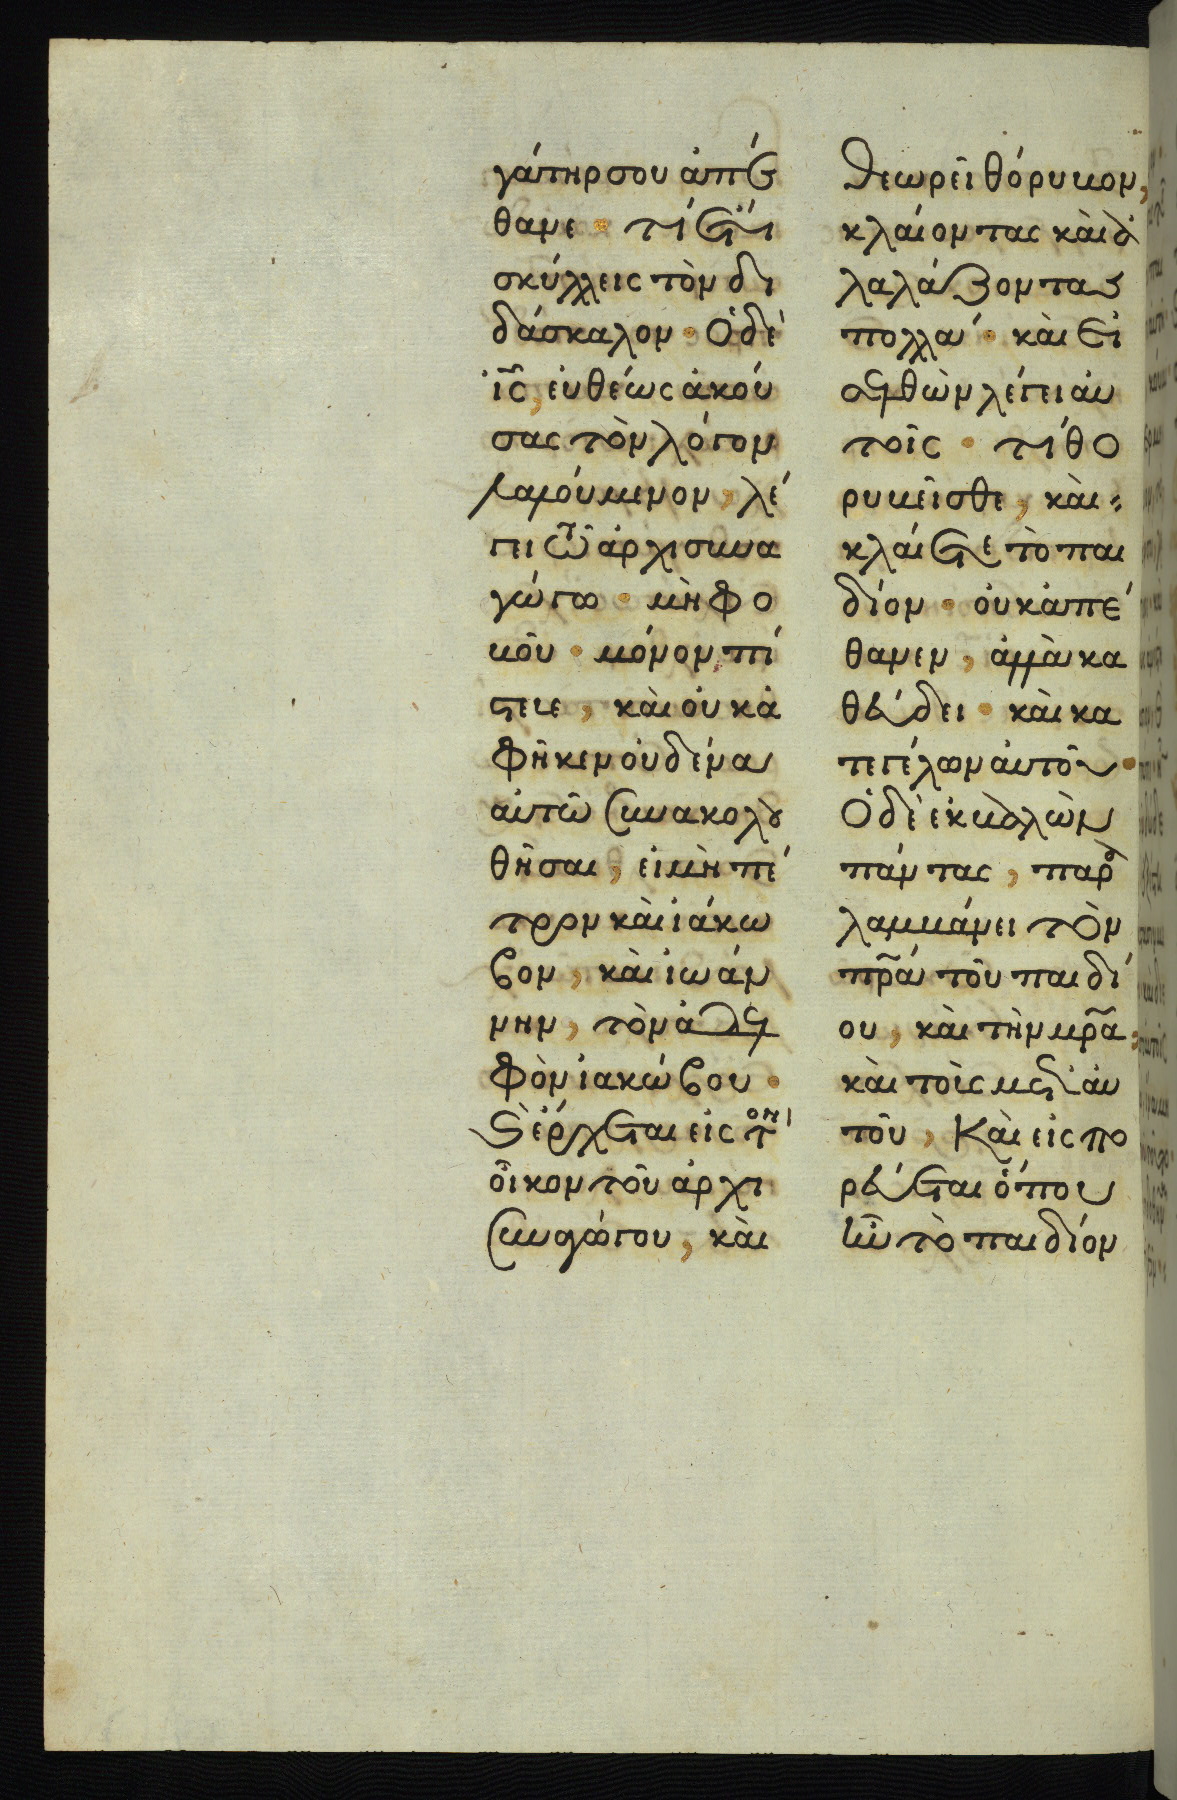 γάτηρ σου ἀπέ
θανε · τί ἔτι
σκύλλεις τὸν δι
δάσκαλον · Ὁ δὲ
ις̅, εὐθέως ἀκού
σας τὸν λόγον
λαλούμενον, λέ
γει τῶ ἀρχισυνα
γώγω · μὴ φο
βοῦ · μόνον πί
στευε, καὶ οὐκ ἀ
φῆκεν οὐδένα
αὐτῶ συνακολου
θῆσαι, εἰ μὴ πέ
τρον καὶ ἰάκω
βον, καὶ ἰωάν
νην, τὸν ἀδελ
φὸν ἰακώβου ·
Καὶ ἔρχεται εἰς τὸν
οἶκον τοῦ ἀρχι
συναγώγου, καὶ
θεωρεῖ θόρυβον,
κλαίοντας καὶ ἀ
λαλάζοντας
πολλά · καὶ εἰ
σελθὼν λέγει αὐ
τοῖς · τί θο
ρυβεῖσθε, καὶ
κλαίετε τὸ παι
δίον · οὐκ ἀπέ
θανεν, ἀλλὰ κα
θεύδει · καὶ κα
τεγέλων αὐτοῦ ·
Ὁ δὲ ἐκβαλὼν
πάντας, παρα
λαμβάνει τὸν
πρ̅α τοῦ παιδί
ου, καὶ τὴν μρ̅α
καὶ τοὺς μετ' αὐ
τοῦ, Καὶ εἰσπο
ρεύεται ὅπου
ἦν τὸ παιδίον